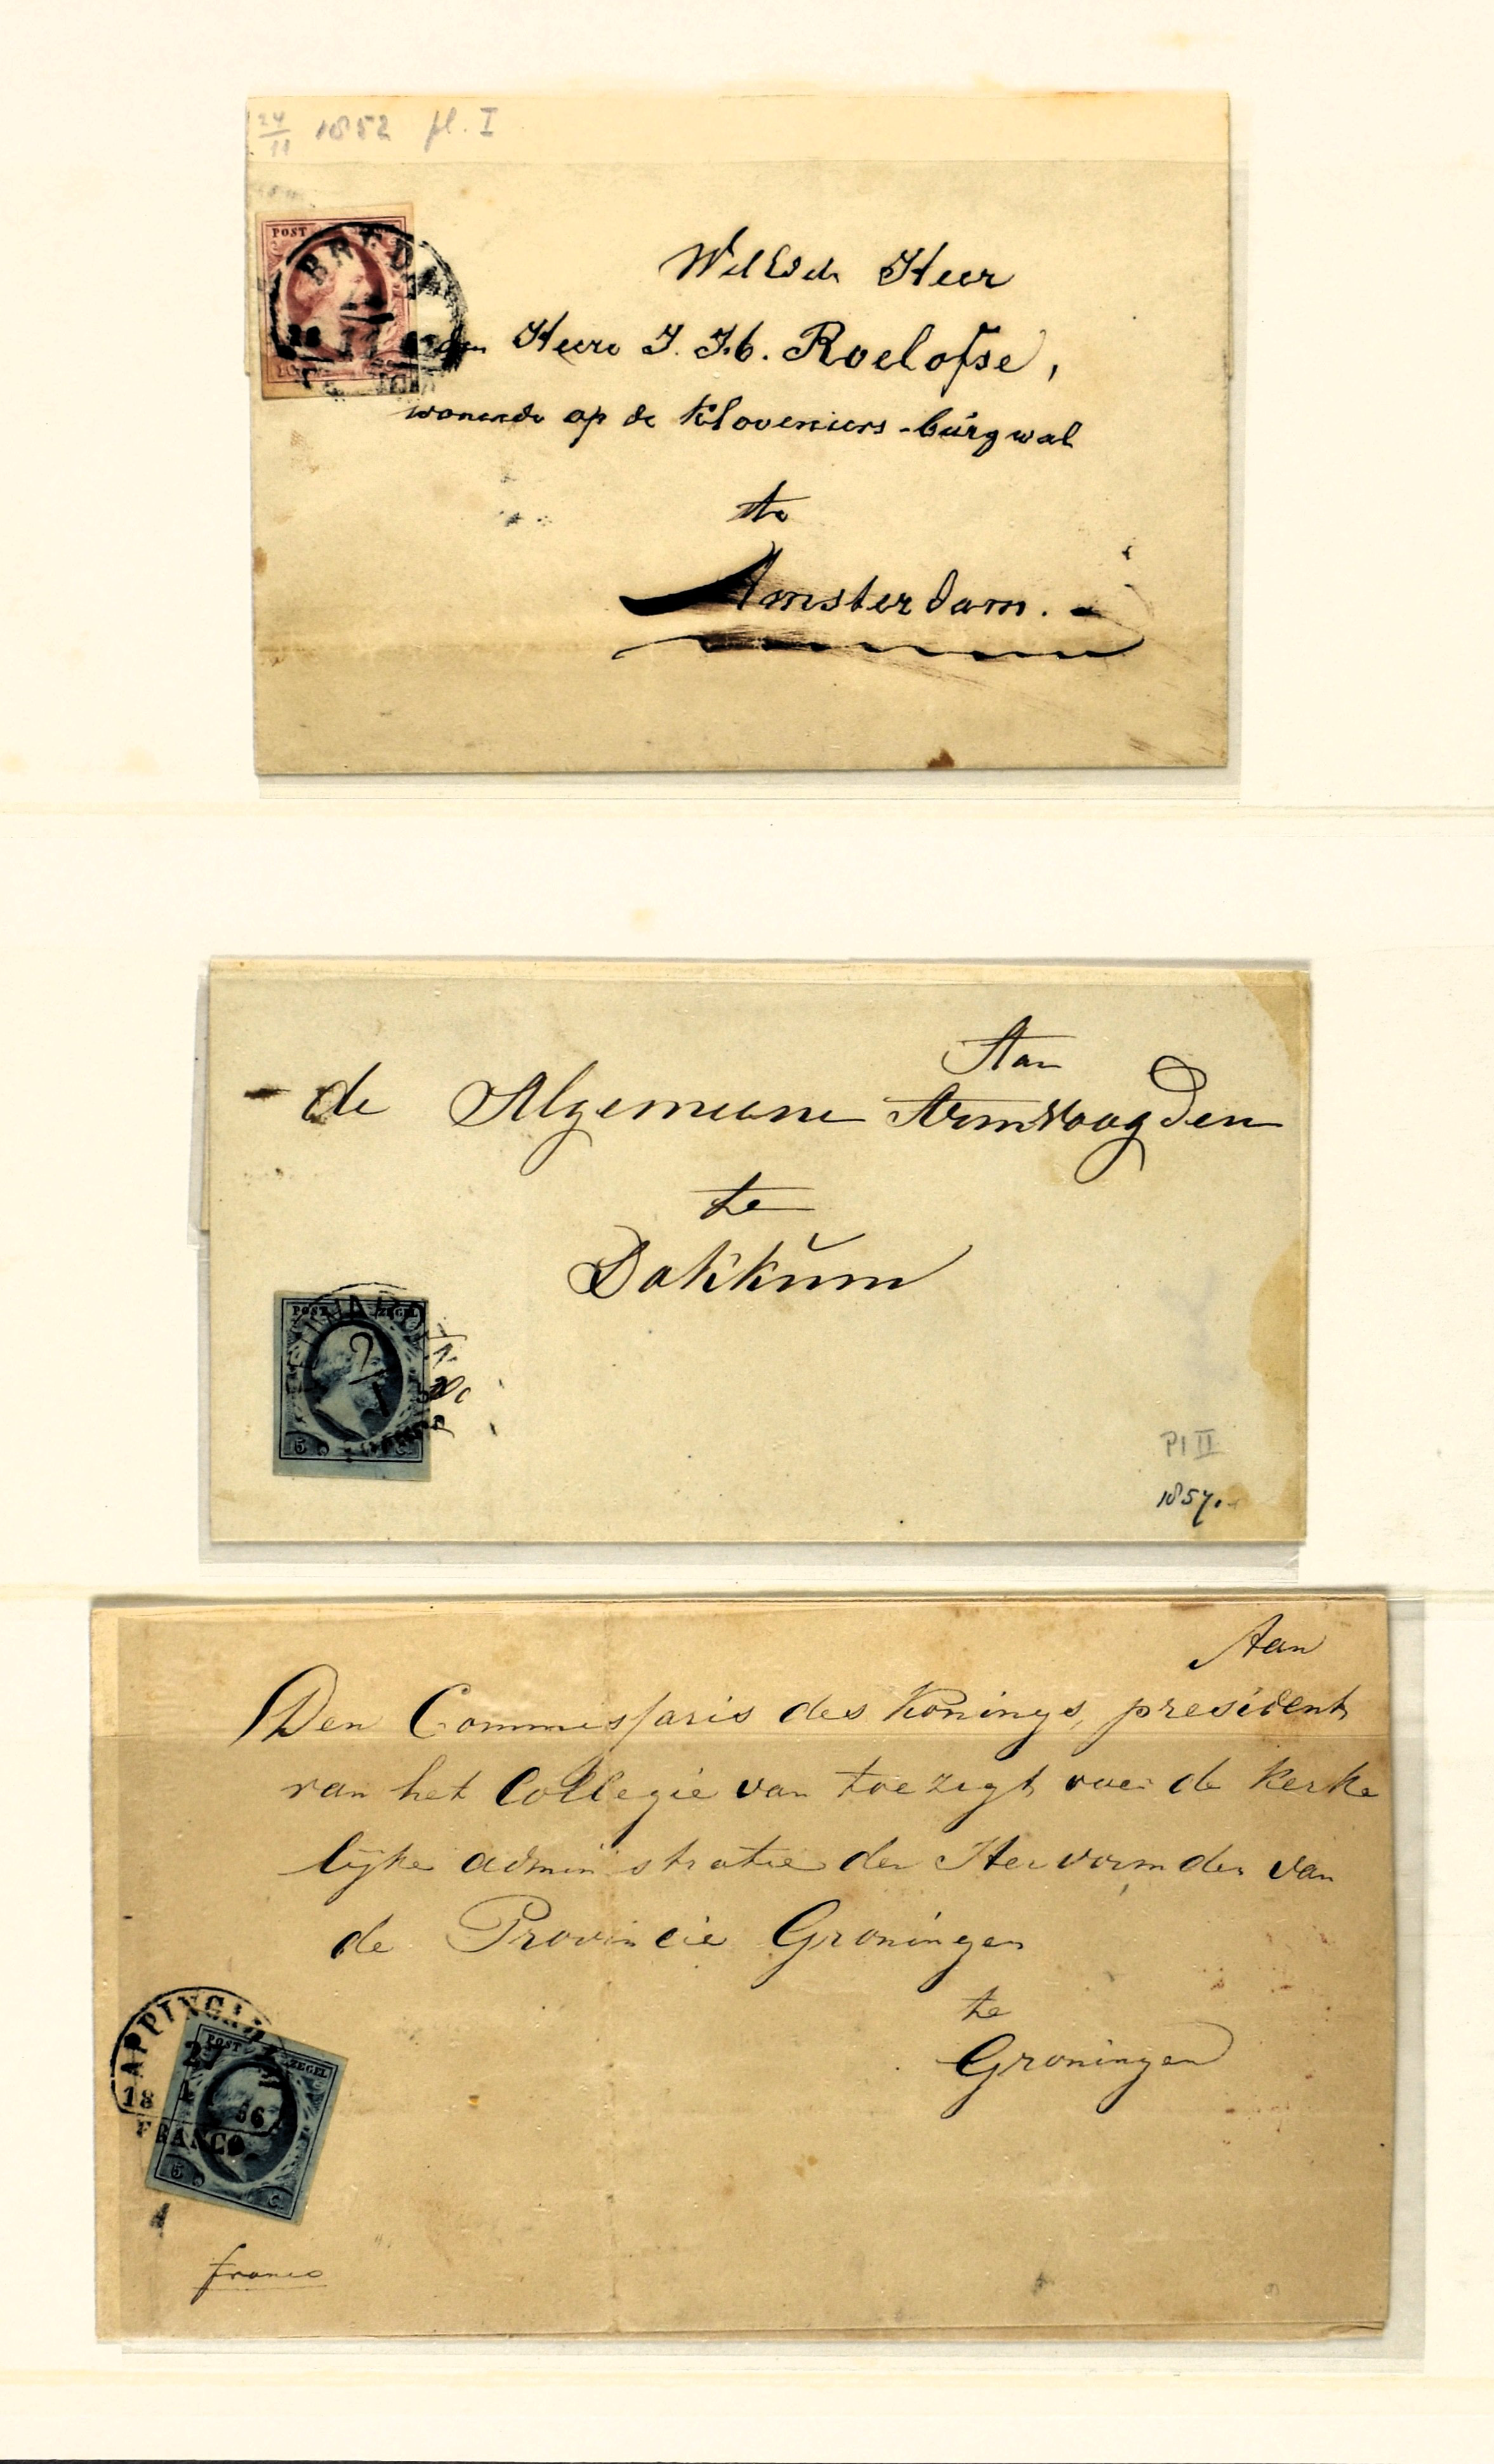 24/11 1852 pl. I
POST
BREDA
Heer
Heere J. J. b. Roelofse,
wonende op de Kloveniers-burgwal
te
Amsterdam.
Aan
de Algemeene Armvoogden
te
Dokkum
POST ZEGEL
2/1
5 C.
Pl II
1857.
Aan
Den Commissaris des Konings, president
van het Collegie van toezigt over de kerke
lijke administratie der Hervormden van
de Provincie Groningen
te
Groningen
APPINGED
POST ZEGEL
27
18 56
FRANCO
5 C.
franco